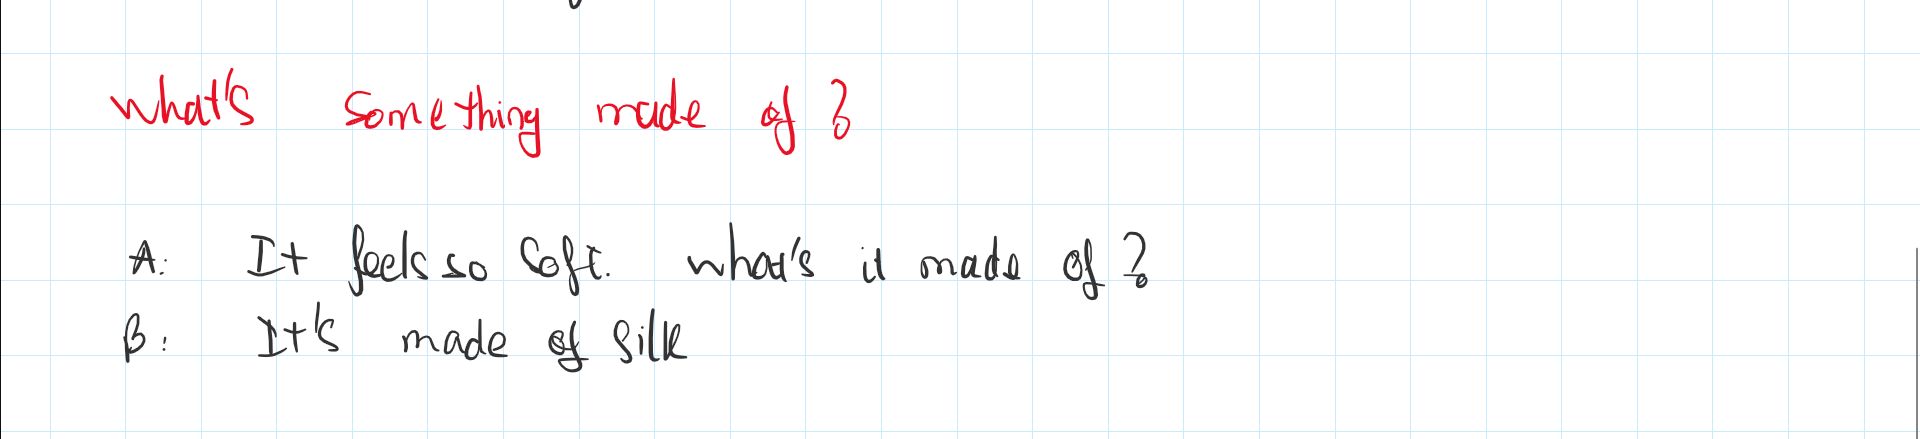 What's something made of?
A: It feels so soft. what's it made of?
B: It's made of silk